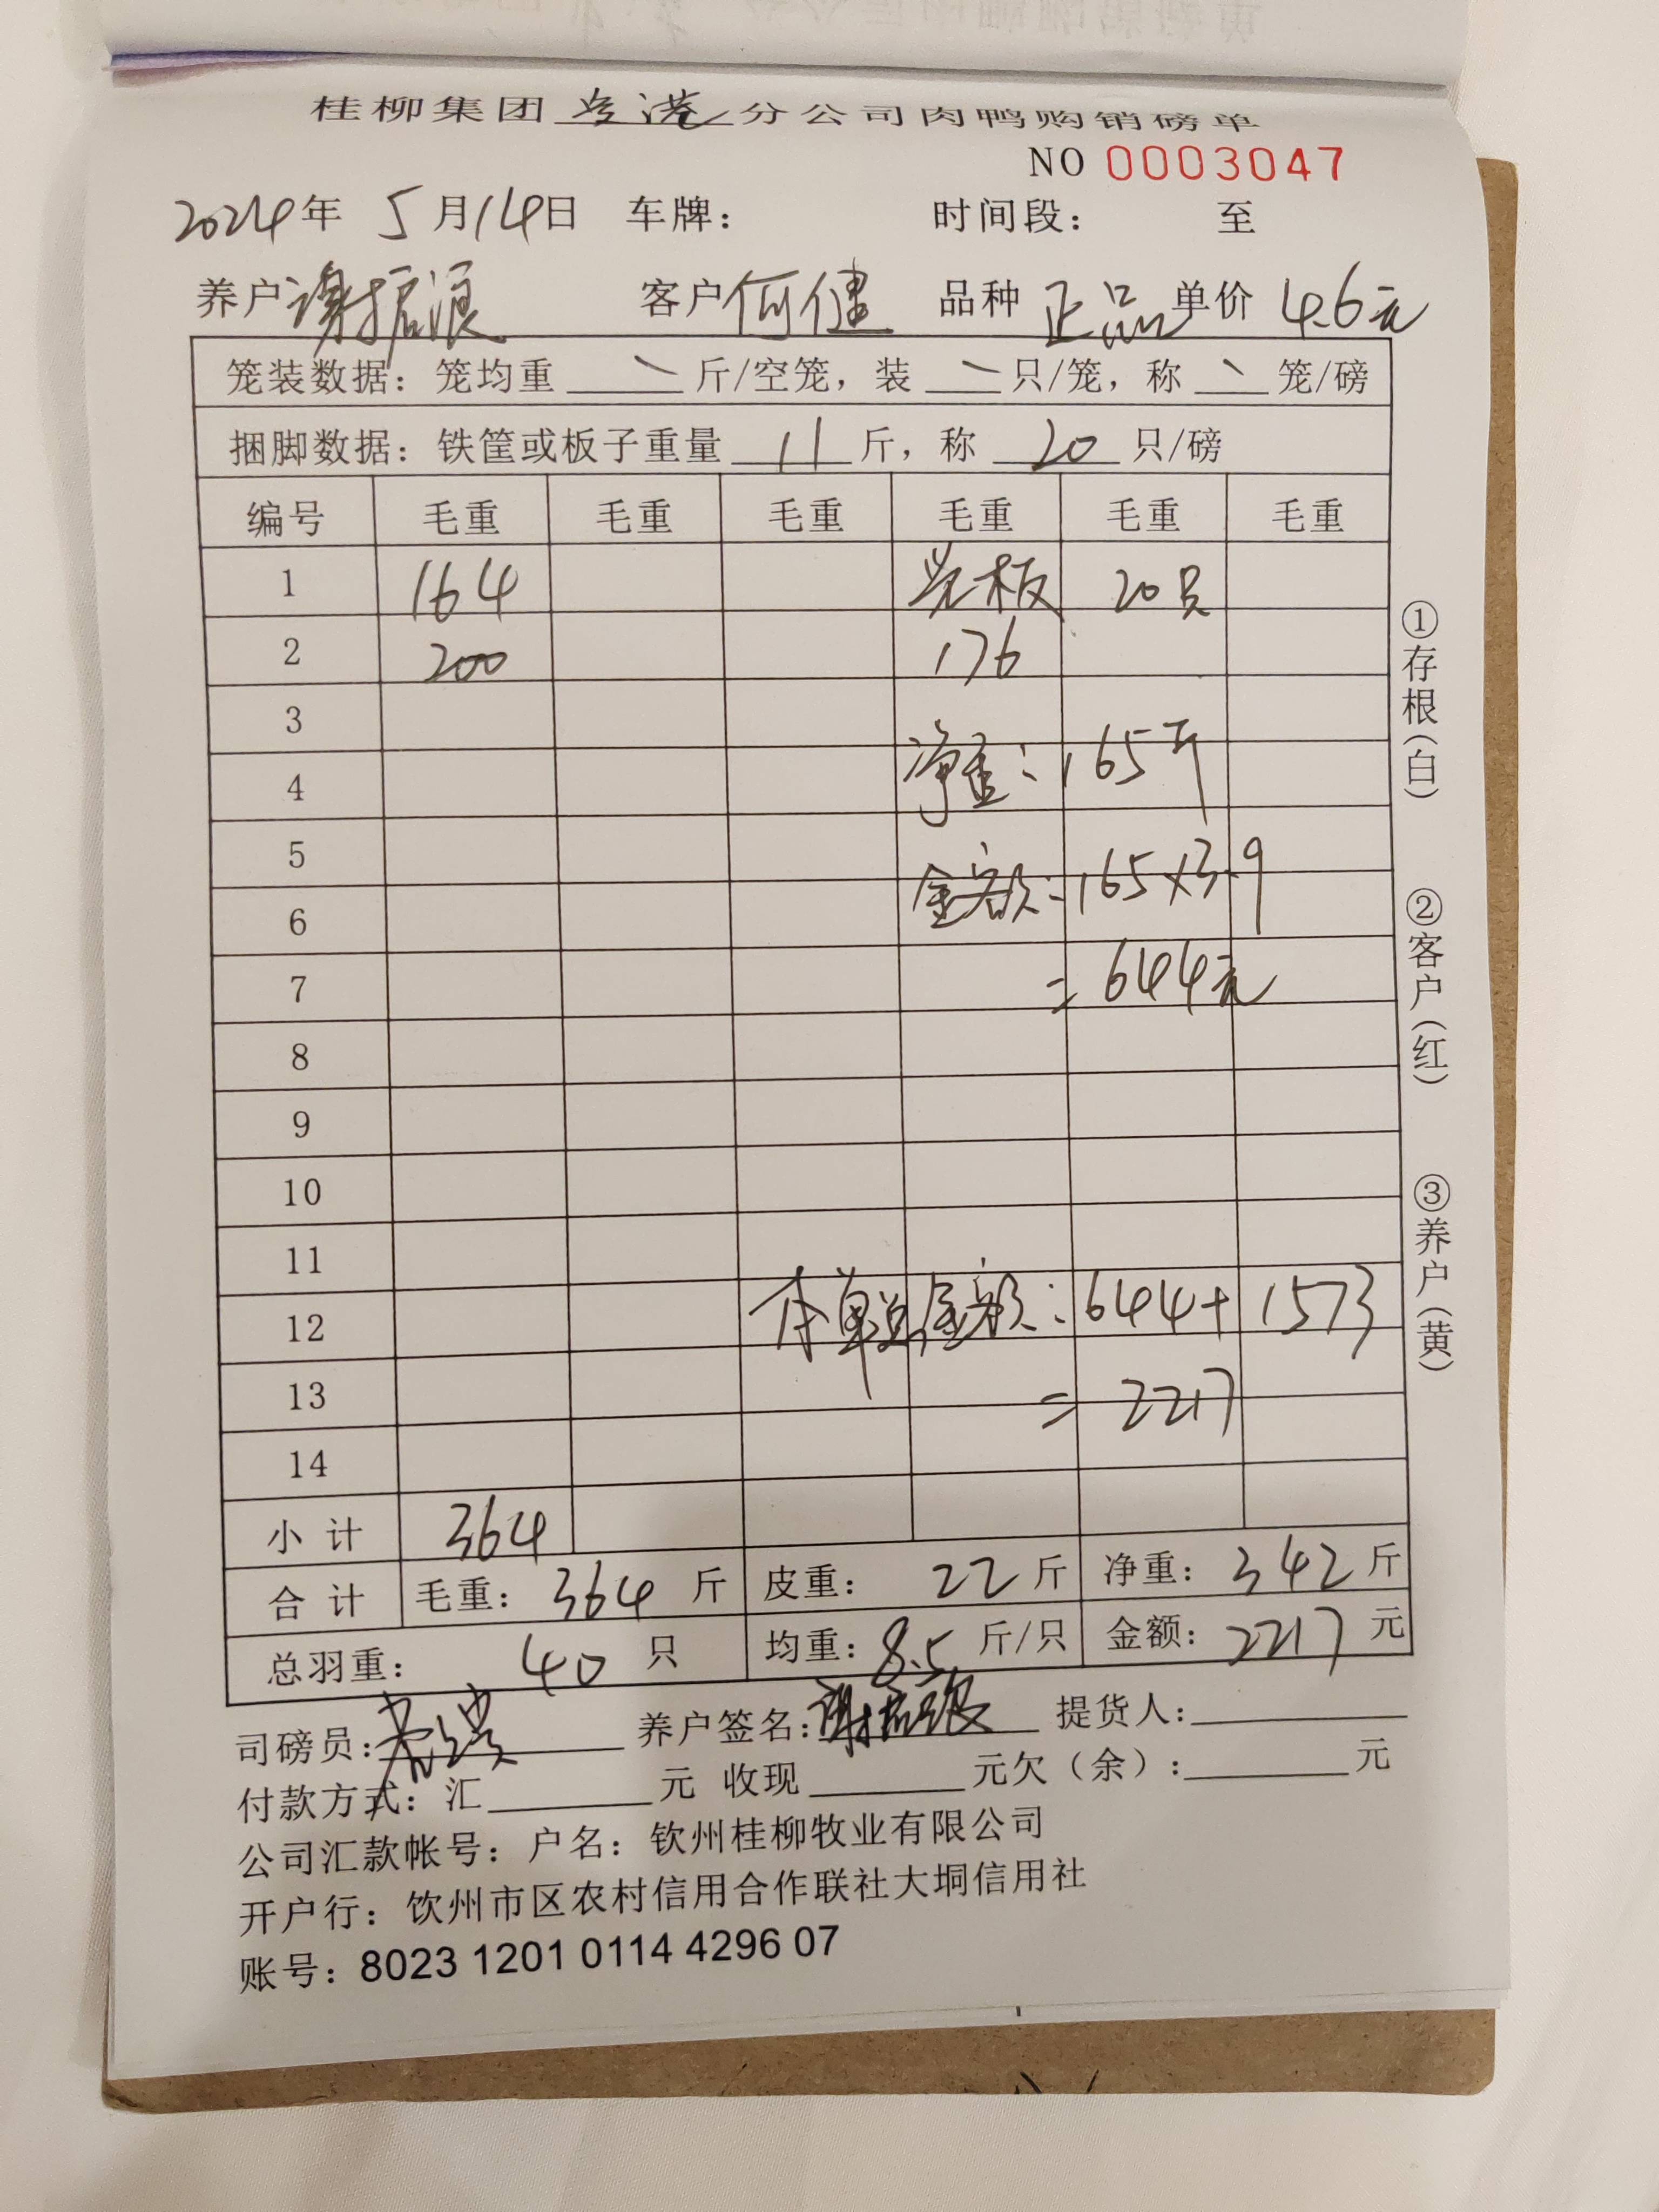 桂柳集团 贵港 分公司肉鸭购销磅单
NO 0003047
2024年 5月14日 车牌： 时间段： 至
养户 谢振浪 客户 何健 品种 正品 单价 4.6元
笼装数据：笼均重 \ 斤/空笼，装 \ 只/笼，称 \ 笼/磅
捆脚数据：铁筐或板子重量 11 斤，称 20 只/磅
编号 毛重 毛重 毛重 毛重 毛重 毛重
1 164 板 20只
2 200 176
3
4 净重：165斤
5
6 金额：165×3.9
7 =644元
8
9
10
11
12 本单总金额：644+1573
13 =2217
14
小计 364
合计 毛重：364 斤 皮重：22斤 净重：342斤
总羽重：40 只 均重：8.5 斤/只 金额：2217 元
司磅员： 养户签名：谢振浪 提货人：
付款方式：汇 元 收现 元欠（余）： 元
公司汇款帐号：户名：钦州桂柳牧业有限公司
开户行：钦州市区农村信用合作联社大垌信用社
账号：8023 1201 0114 4296 07
①存根（白）
②客户（红）
③养户（黄）